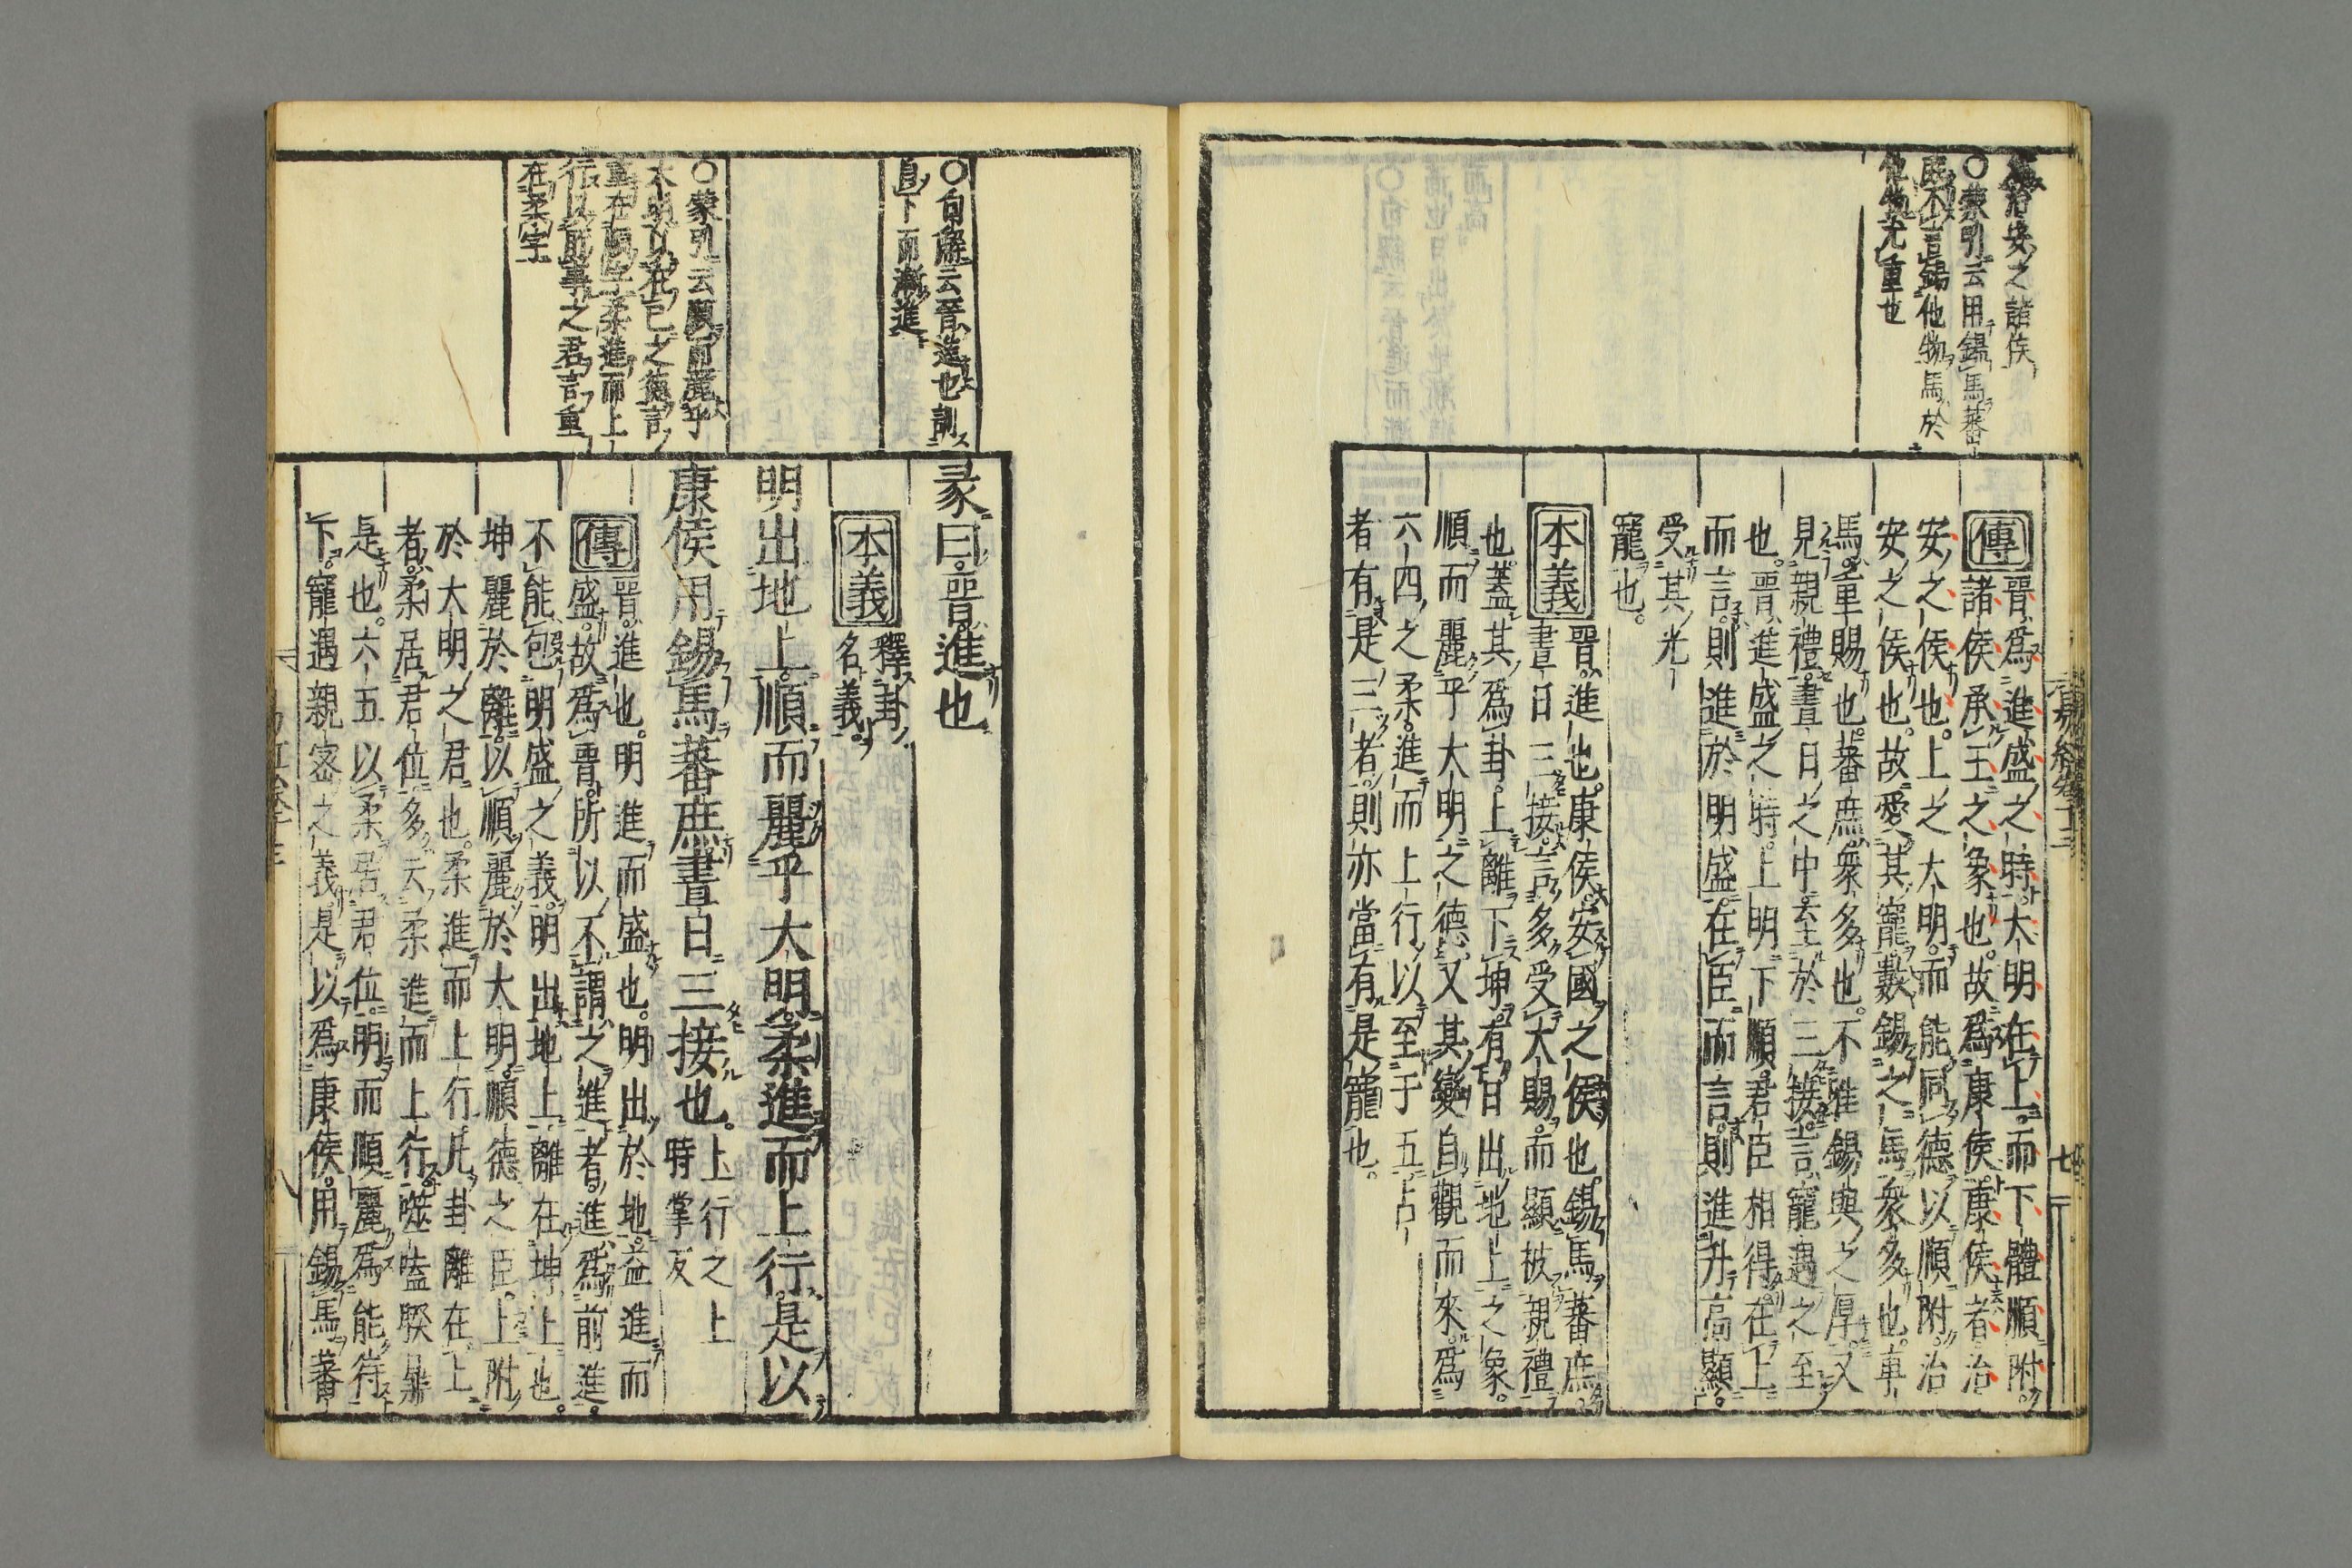 治安之諸侯
〇蒙引云用錫馬蕃
庶不言錫他物馬於
他物尤重也
易經卷十三
七
傳
晋爲進盛之時大明在上而下體順附
諸侯承王之象也故爲康侯康侯者治
安之侯也上之大明而能同德以順附治
安之侯也故愛其寵數錫之馬衆多也車
馬重賜也蕃庶衆多也不唯錫與之厚又
見親禮晝日之中至於三接言寵遇之至
也晋進盛之時上明下順君臣相得在上
而言則進於明盛在臣而言則進升高顯
受其光
寵也
本義
晋進也康侯安國之侯也錫馬蕃庶
晝日三接言多受大賜而顯被親禮
也蓋其爲卦上離下坤有日出地上之象
順而麗乎大明之德又其變自觀而來爲
六四之柔進而上行以至于五占
者有是三者則亦當有是寵也
〇句解云晋進也訓
自下而漸進
〇蒙引云順而麗乎
大明以在己之德言
重在順字柔進而上
行以所事之君言重
在柔字
彖曰晋進也
本義
釋卦
名義
明出地上順而麗乎大明柔進而上行是以
康侯用錫馬蕃庶晝日三接也
上行之上
時掌反
傳
晋進也明進而盛也明出於地益進而
盛故爲晋所以不謂之進者進爲前進
不能包明盛之義明出地上離在坤上也
坤麗於離以順麗於大明順德之臣上附
於大明之君也柔進而上行凡卦離在上
者柔居君位多云柔進而上行噬嗑睽鼎
是也六五以柔居君位明而順麗爲能待
下寵遇親密之義是以爲康侯用錫馬蕃
八